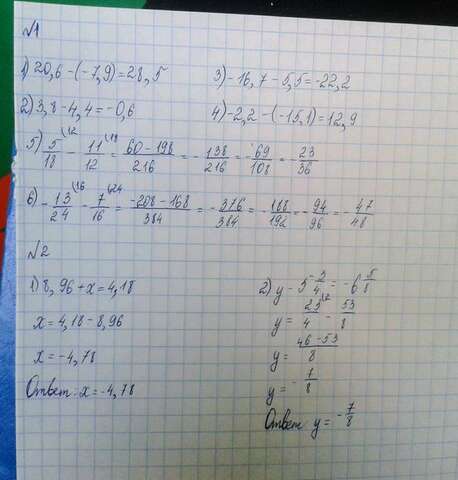 №1
1) 20,6 - (-7,9) = 28,5
3) -16,7 - 5,5 = -22,2
2) 3,8 - 4,4 = -0,6
4) -2,2 - (-15,1) = 12,9
5) 5/18 \12 - 11/12 \18 = 60-198/216 = -138/216 = -69/108 = -23/36
6) -13/24 \16 - 7/16 \24 = -208-168/384 = -376/384 = -188/192 = -94/96 = -47/48
№2
1) 8,96 + x = 4,18
x = 4,18 - 8,96
x = -4,78
Ответ: x = -4,78
2) y - 5 3/4 = -6 5/8
y = 23/4 \2 - 53/8
y = 46-53/8
y = -7/8
Ответ y = -7/8